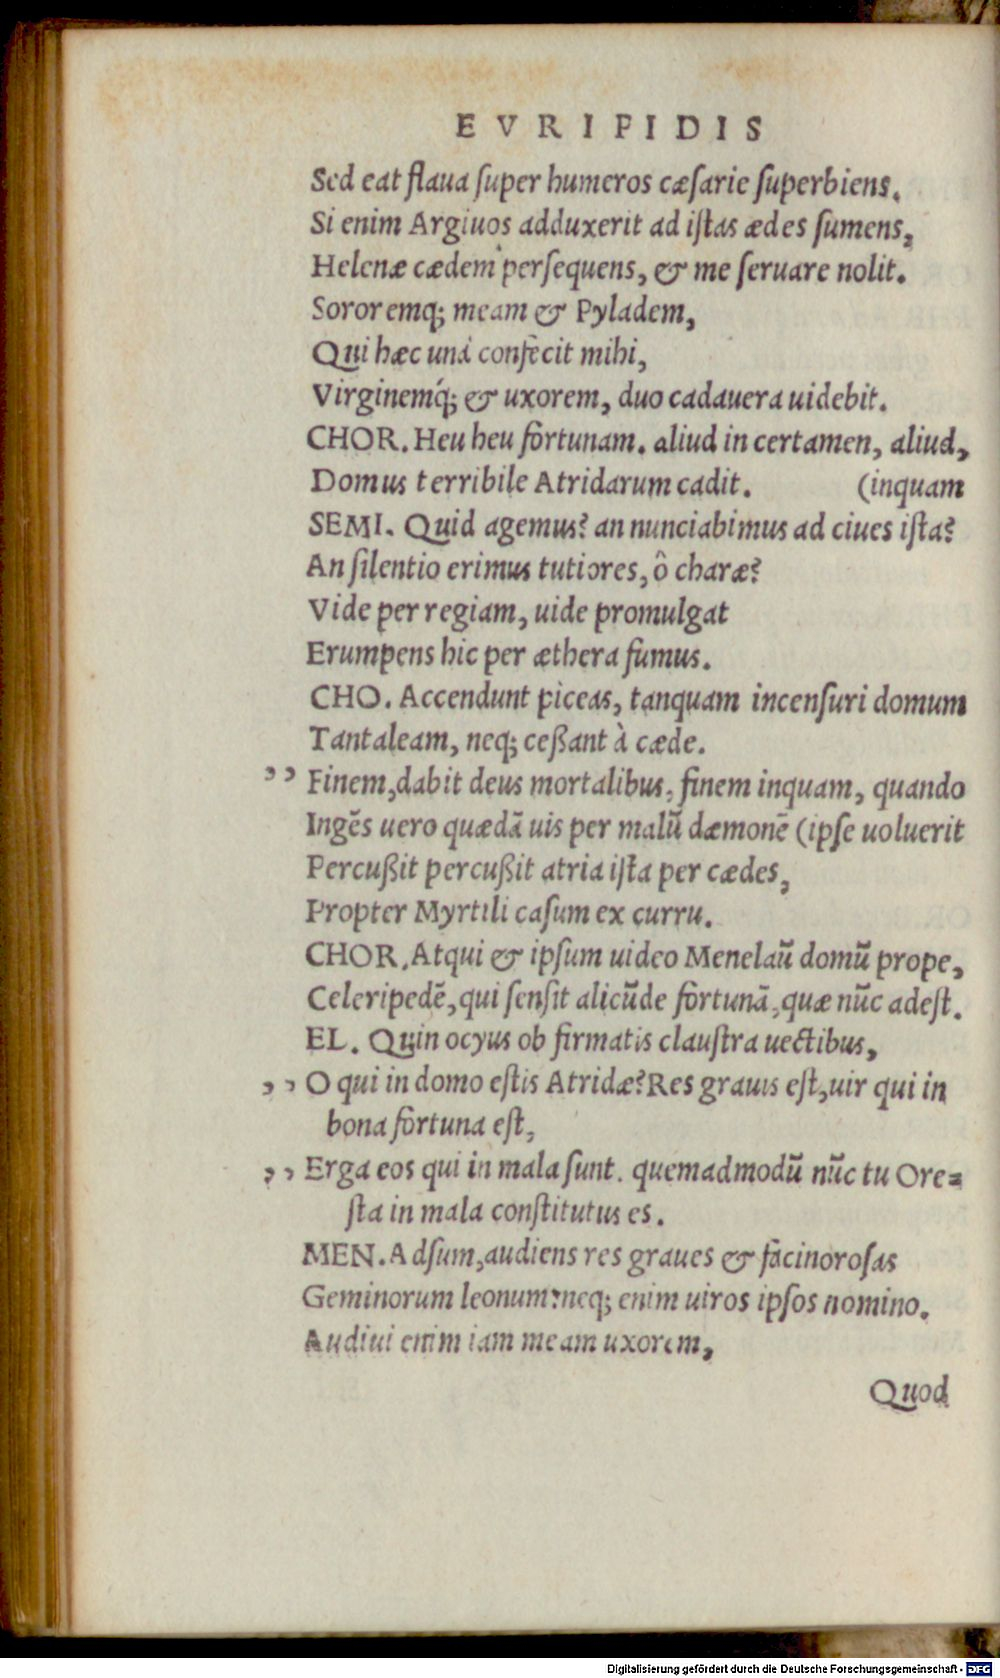 EVRIPIDIS
Sed eat flaua ſuper humeros cæſarie ſuperbiens.
Si enim Argiuos adduxerit ad iſtas ædes ſumens,
Helenæ cædem perſequens, & me ſeruare nolit.
Sororemq; meam & Pyladem,
Qui hæc unà confecit mihi,
Virginemq́; & uxorem, duo cadauera uidebit.
CHOR. Heu heu fortunam. aliud in certamen, aliud,
Domus terribile Atridarum cadit. (inquam
SEMI. Quid agemus? an nunciabimus ad ciues iſta?
An ſilentio erimus tutiores, ô charæ?
Vide per regiam, uide promulgat
Erumpens hic per æthera fumus.
CHO. Accendunt piceas, tanquam incenſuri domum
Tantaleam, neq; ceßant à cæde.
,, Finem, dabit deus mortalibus, finem inquam, quando
Ingẽs uero quædã uis per malũ dæmonẽ (ipſe uoluerit
Percußit percußit atria iſta per cædes,
Propter Myrtili caſum ex curru.
CHOR. Atqui & ipſum uideo Menelaũ domũ prope,
Celeripedẽ, qui ſenſit alicũde fortunã, quæ nũc adeſt.
EL. Quin ocyus ob firmatis clauſtra uectibus,
,, O qui in domo eſtis Atridæ? Res grauis eſt, uir qui in
bona fortuna eſt,
,, Erga eos qui in mala ſunt. quemadmodũ nũc tu Ore=
ſta in mala conſtitutus es.
MEN. Adſum, audiens res graues & facinoroſas
Geminorum leonum: neq; enim uiros ipſos nomino.
Audiui enim iam meam uxorem,
Quod
Digitalisierung gefördert durch die Deutsche Forschungsgemeinschaft - DFG